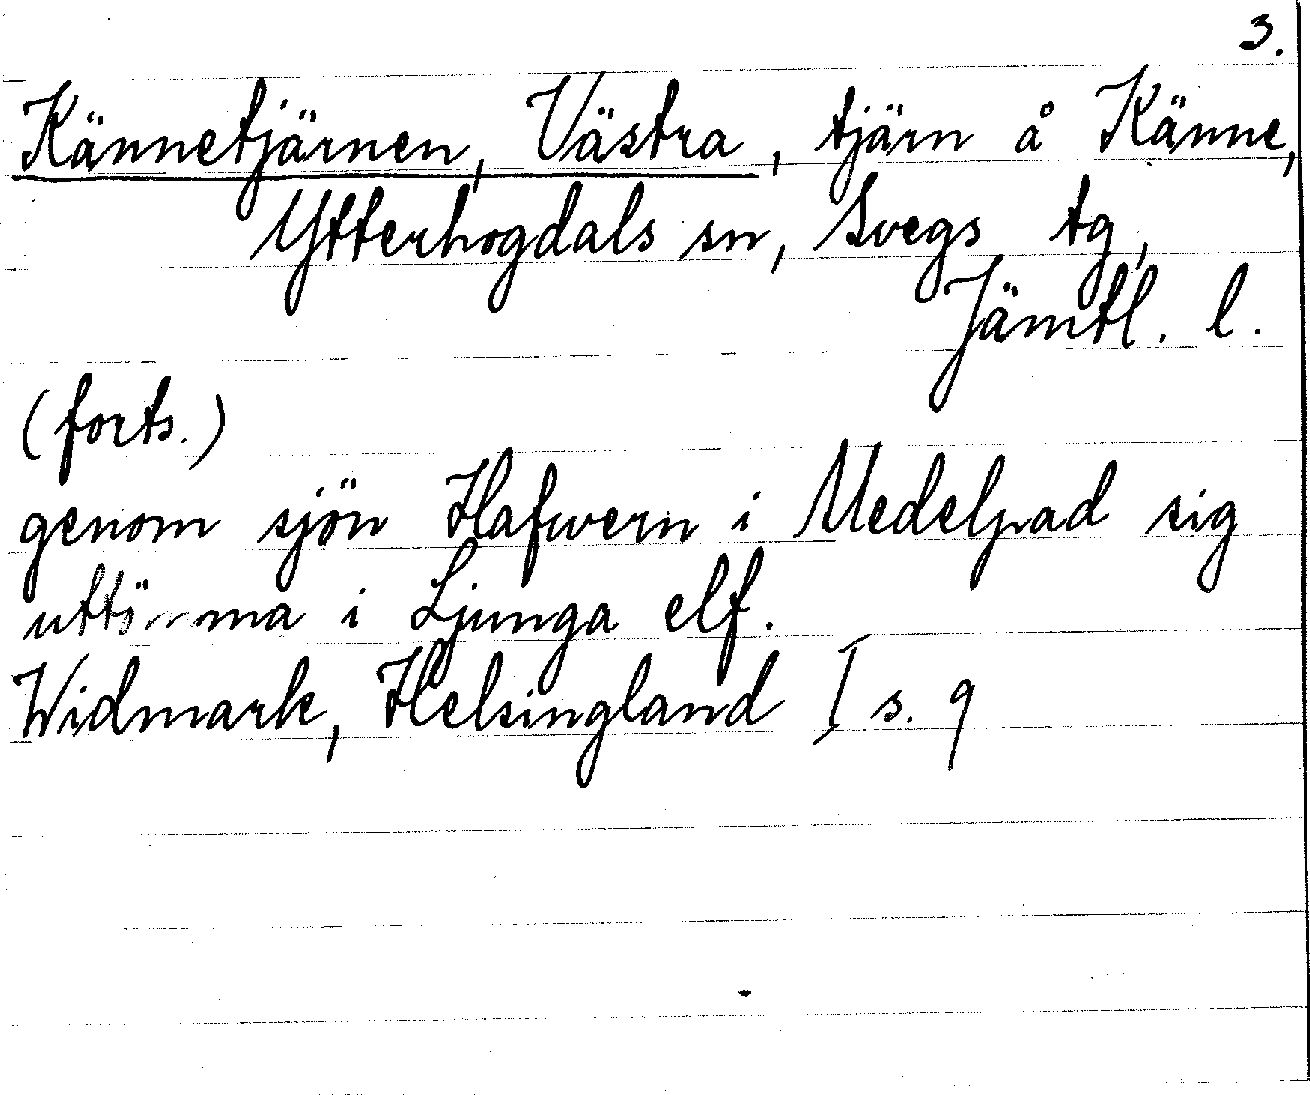 3.
Kännetjärnen, Västra, tjärn å Känne,
Ytterhogdals sn, Svegs tg,
Jämtl. l.
(forts.)
genom sjön Hafwern i Medelpad sig
uttömma i Ljunga elf.
Widmark, Helsingland I s. 9